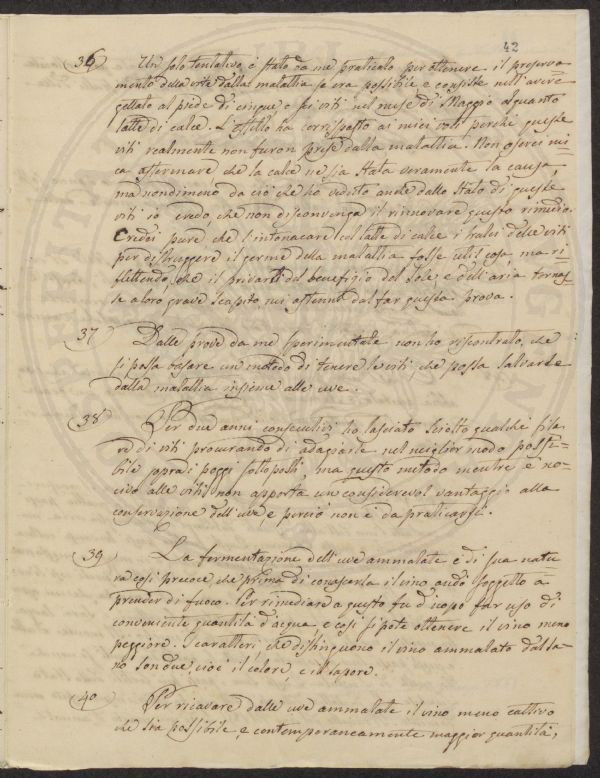 42
36 Un solo tentativo è stato da me praticato per ottenere il preserva-
mento della vite dalla malattia se era possibile e consiste nell'avere
gettato al piede di cinque o sei viti nel mese di Maggio alquanto
latte di calce. L'esito ha corrisposto ai miei voti perché queste
viti realmente non furon prese dalla malattia. Non oserei mi
ca affermare che la calce ne sia stata veramente la causa,
ma nondimeno da ciò che ho veduto anche dallo stato di queste
viti io credo, che non disconvenga il rinnovare questo rimedio.
Credei pure che l'intonacare col latte di calce i tralci delle viti
per distruggere il germe della malattia fosse util cosa, ma ri-
flettendo, che il privarli del benefizio del sole e dell'aria tornas-
se a loro grave scapito, mi astenni dal far questa prova.
37 Dalle prove da me sperimentate non ho riscontrato, che
si possa usare un metodo di tenere le viti, che possa salvarle
dalla malattia insieme alle uve.
38 Per due anni consecutivi ho lasciato sciolto qualche fila
re di viti procurando di adagiarle nel miglior modo possi-
bile sopra i poggi sottoposti, ma questo metodo mentre è no-
civo alle viti non apporta un considerevol vantaggio alla
conservazione dell'uve, e perciò non è da praticarsi.
39 La fermentazione dell'uve ammalate è di sua natu
ra così precoce che prima di conoscerla il vino andò soggetto a
prender di fuoco. Per rimediare a questo fu d'uopo far uso di
conveniente quantità d'acqua e così si poté ottenere il vino meno
peggiore. I caratteri, che distinguono il vino ammalato dal sa-
no son due, cioè il colore, e il sapore.
40 Per ricavare dalle uve ammalate il vino meno cattivo
che sia possibile, e contemporaneamente maggior quantità,